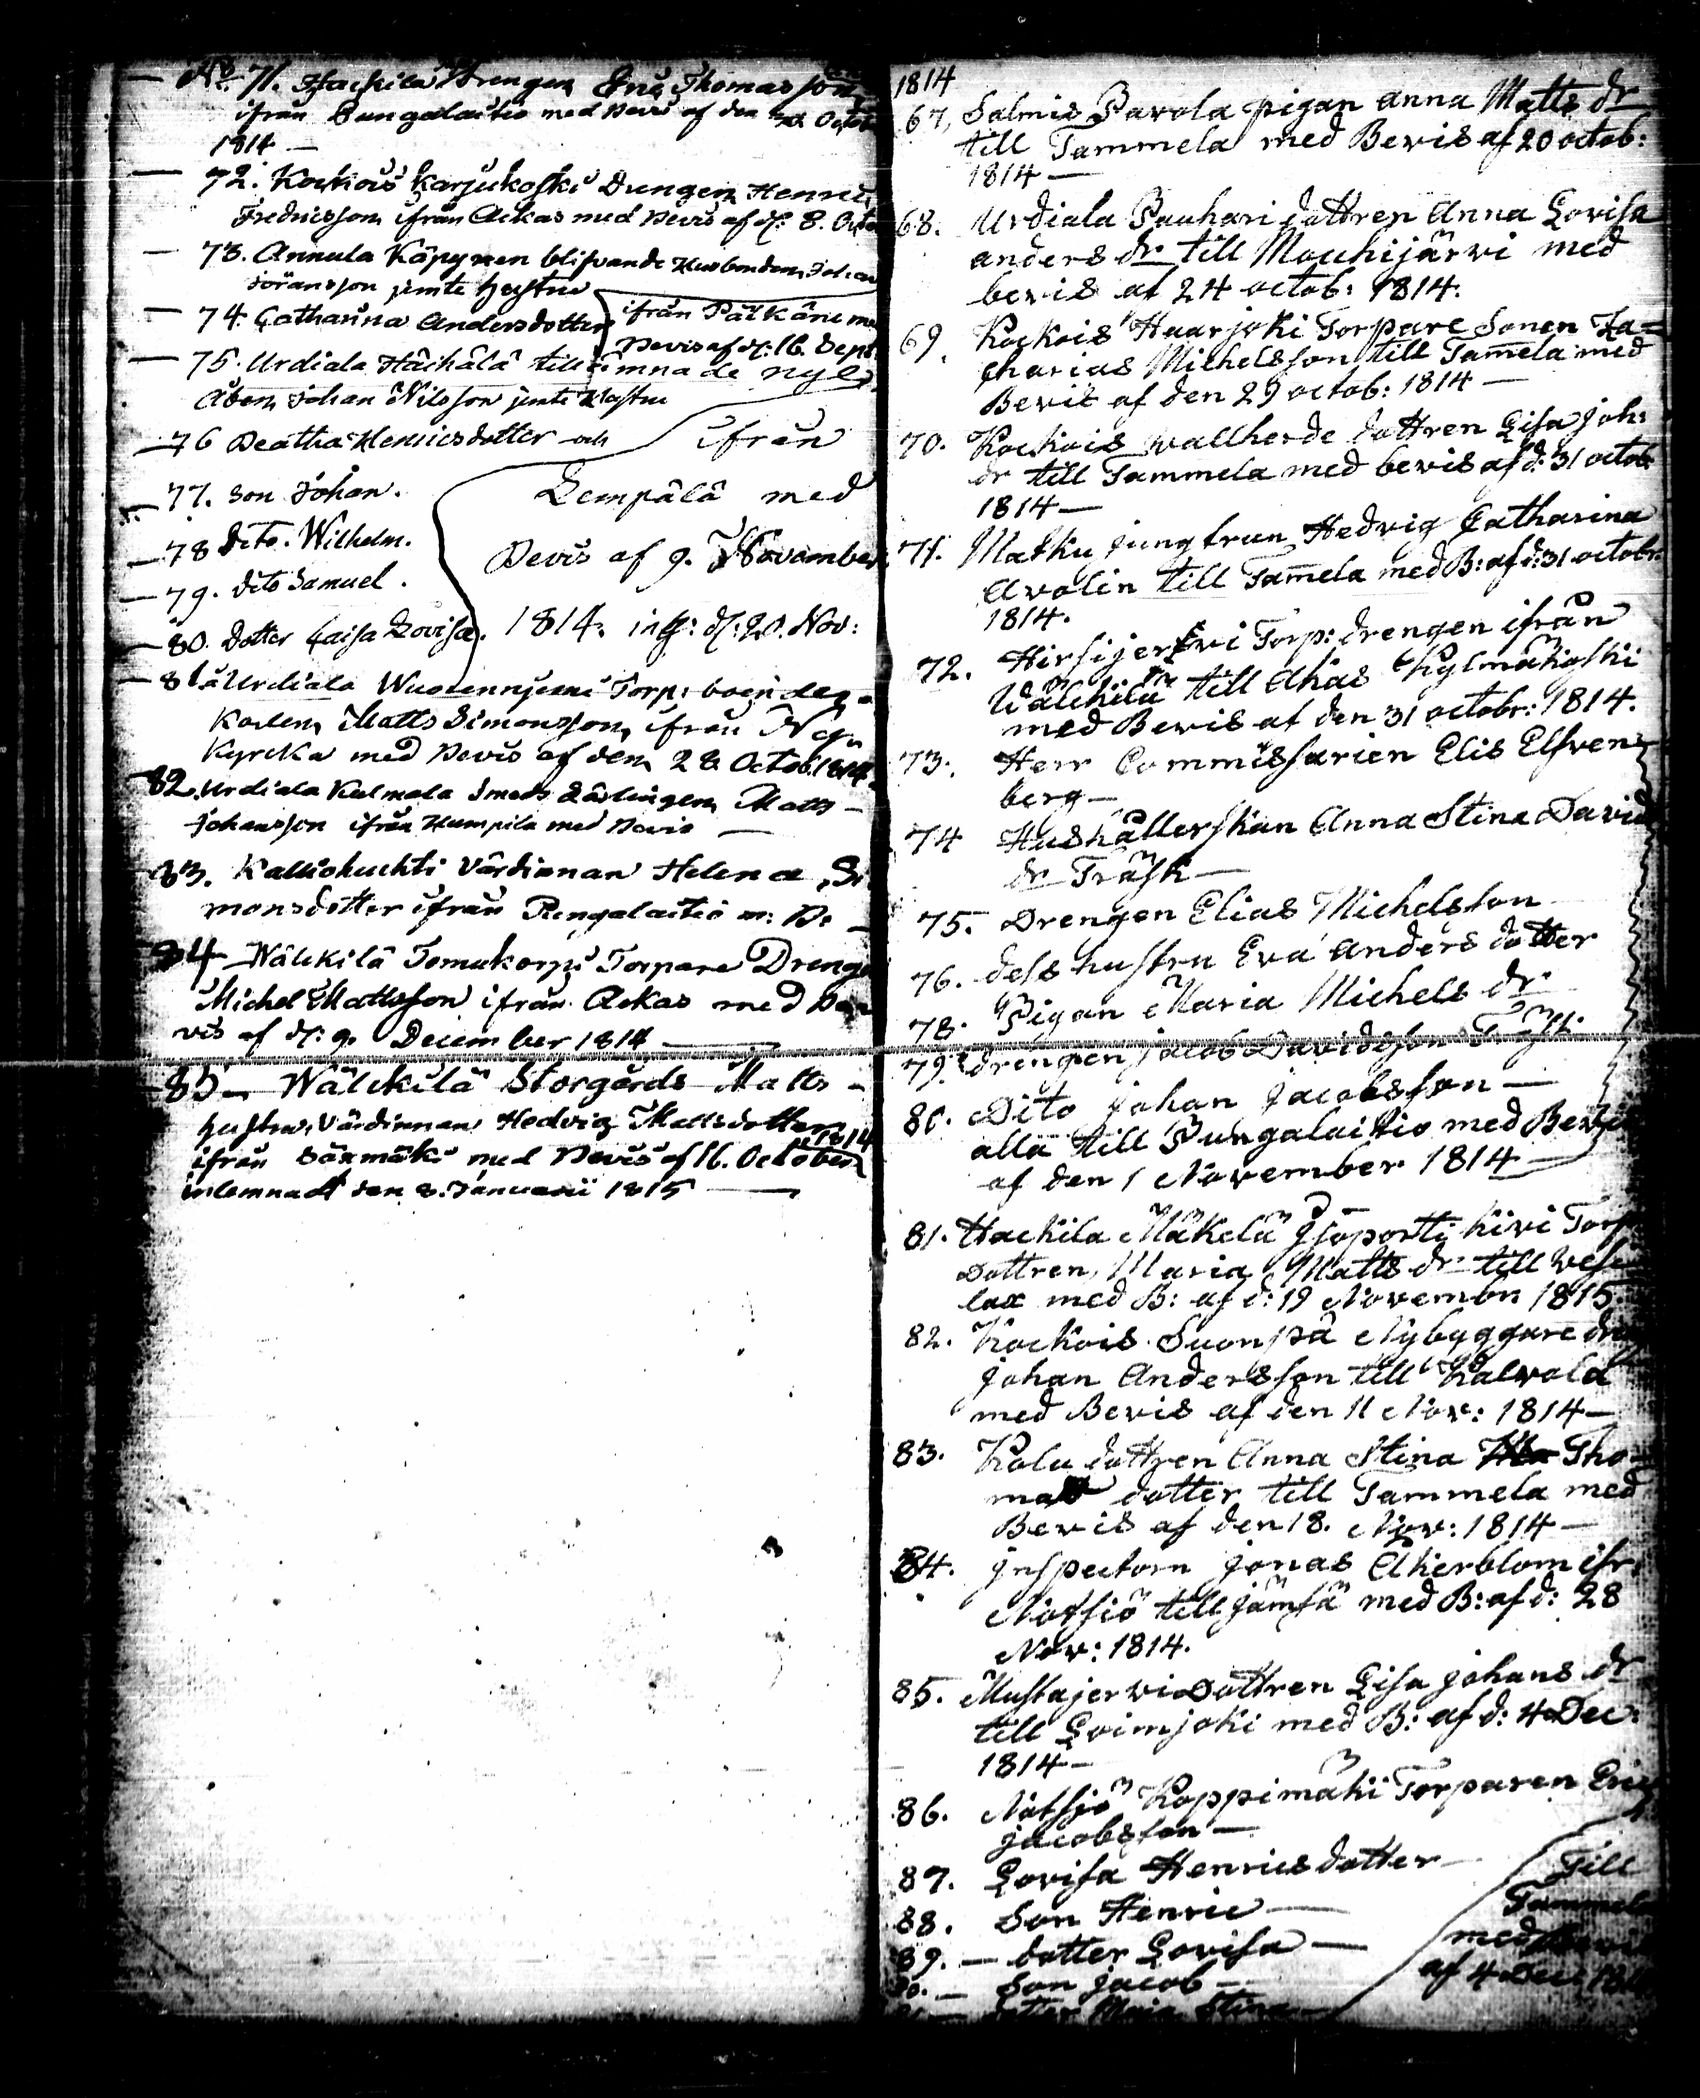 No 71. Hackila Drengen Eric Thomasson
ifrån Pungalaitio med Bevis af den Octob
1814 —
72. Kockois Karjukoski Drengen Henric
Fredricsson ifrån Ackas med Bevis af d: 8. Octo
73. Annula Käpynen blifvande Husbonden Johan
Göransson jemte hustru
74. Catharina Andersdotter ifrån Pälkäne med
Bevis af d: 16. Sept
75. Urdiala Hächälä tillämnade nyb
Åboen Johan Nilsson jemte Hustru
76 Beatha Henricsdotter och ifrån
77. son Johan. Lempälä med
78 dito. Wilhelm.
Bevis af 9. November
79. dito Samuel.
80. dotter Caisa Lovisa. 1814. inl: d: 20. Nov:
81 Urdiala Torp: boende
Karlen Matts Simonsson ifrån Ny
Kyrcka med Bevis af den 28 Octob. 1814.
82. Urdiala Kulmala Smeds Lärlingen Matts
Johansson ifrån Humpila med Bevis —
83. Kalliohuchti Värdinnan Helena Si
monsdotter ifrån Pungalaitio m: Be
84 Wälckilä Tomukorpi Torpare Drengen
Michel Mattsson ifrån Ackas med Be
vis af d: 9. December 1814 —
85 — Wälckilä Storgårds Matts
hustru, Värdinnan Hedvig Mattsdotter
ifrån Säxmäki med Bevis af 16. October 1814
inlemnadt den 8. Januarii 1815 —
1814
67, Salmis Pavola pigan Anna Matts dr
till Tammela med Bevis af 20 octob:
1814 —
68. Urdiala Pauhari dottren Anna Lovisa
Anders dr till Mouhijärvi med
bevis af 24 octob: 1814.
69. Kockois Haarjoki Torpare Sonen Za=
charias Michelsson till Tam̄ela med
Bevis af den 29 octob: 1814 —
70. Kockois vallherde dottren Lisa Joh:
dr till Tammela med bevis af d: 31 octob:
1814 —
71. Matku jungfrun Hedvig Catharina
Avolin till Tam̄ela med B: af d: 31 octobr.
1814.
72. Hirsijervi Torp: drengen ifrån
Wälckilä till Akas Kylmäkoski
med Bevis af den 31 octobr: 1814.
73. Herr Commissarien Elis Elfven=
berg —
74 Hushållerskan Anna Stina David
dr Träsk —
75. Drengen Elias Michelsson
76. dess hustru Eva Anders dotter
78. Pigan Maria Michels dr
79. drengen Jacob Davidsson
80. Dito Johan Jacobsson —
alla till Pungalaitio med Bevis
af den 1 November 1814 —
81. Hackila Mäkelä Isoportti kivi Torp
Dottren, Maria Matts dr till Vesi
lax med B: af d: 19 Novembr 1815.
82. Kockois Suonpä Nybyggare dr
Johan Andersson till Kalvola
med Bevis af den 11 Nov: 1814 —
83. Kolu dottren Anna Stina Tho=
mas dotter till Tammela med
Bevis af den 18. Nov: 1814 —
84. Inspectorn Jonas Åkerblom ifr:
Notsjö till Jämsä med B: af d: 28
Nov: 1814.
85. Mustajervi Dottren Lisa Johans dr
till Loimjoki med B: af d: 4 Dec:
1814 —
86. Notsjö Koppimäki Torparen Eric
Jacobsson —
87. Lovisa Henricsdotter — Till
88. Son Henric — Tammela
89. — dotter Lovisa — med Bevis
90. — Son Jacob — af 4 Dec 1814
dotter Maja Stina —